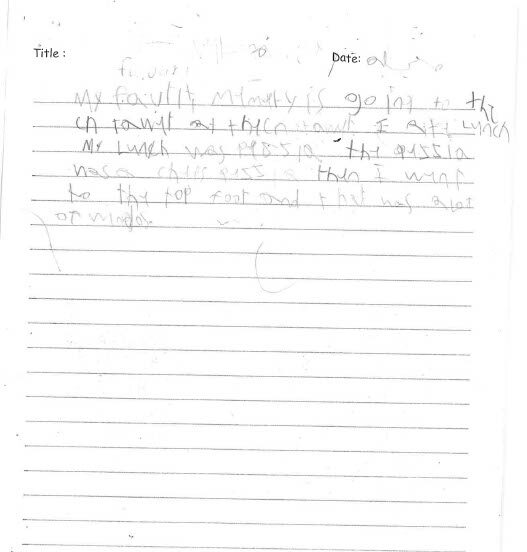 Title : Date:
My favult memery is going to the
cn tawit at the cn tawit I ate Lunch
My Lunch was pessia the pessia
was a chess pessia then I went
to the top foot and that has alot
of windos